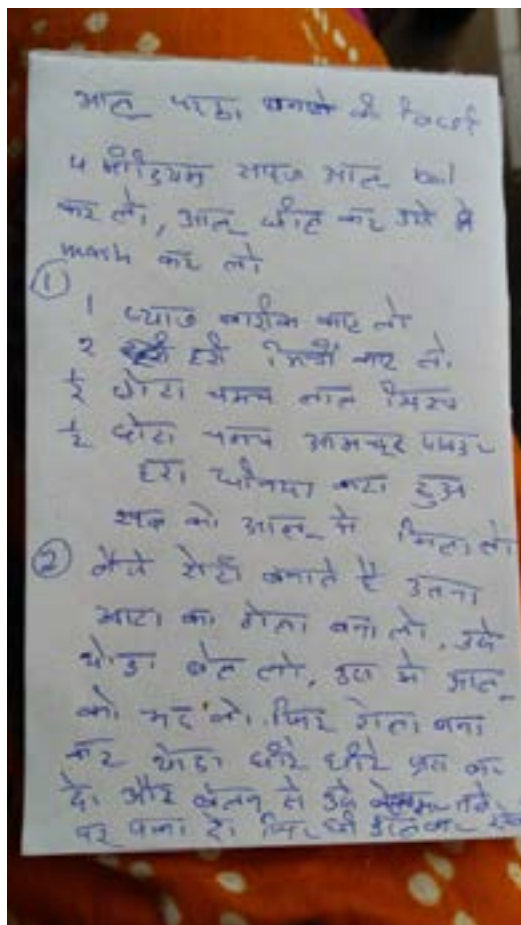 आलू पराठा बनाने की Recipe
4 मीडियम साइज आलू boil
कर लो, आलू छील कर उसे
mash कर लो
①
1 प्याज बारीक काट लो
2 हरी मिर्ची काट लो
½ छोटा चमच लाल मिरच
½ छोटा चमच आमचूर पाउडर
हरा धनिया कटा हुआ
सब को आलू में मिला लो
② जैसे रोटी बनाते है उतना
आटा का गोला बना लो, उसे
थोडा बेल लो, उस मे आलू
को भर लो फिर गोला बना
कर थोडा धीरे धीरे प्रेस कर
दे। और बेलन से उसे तवे
पर पका दे। फिर घी डालकर